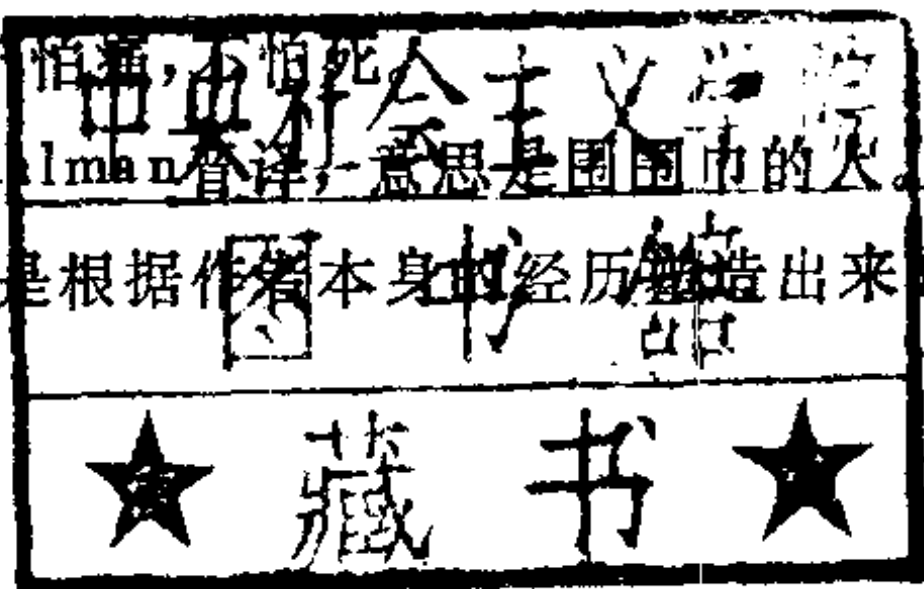 怕痛，不怕死。
中央社会主义学院
alman音译，意思是围围巾的人。
是根据作者本身的经历塑造出来
图书馆
藏书